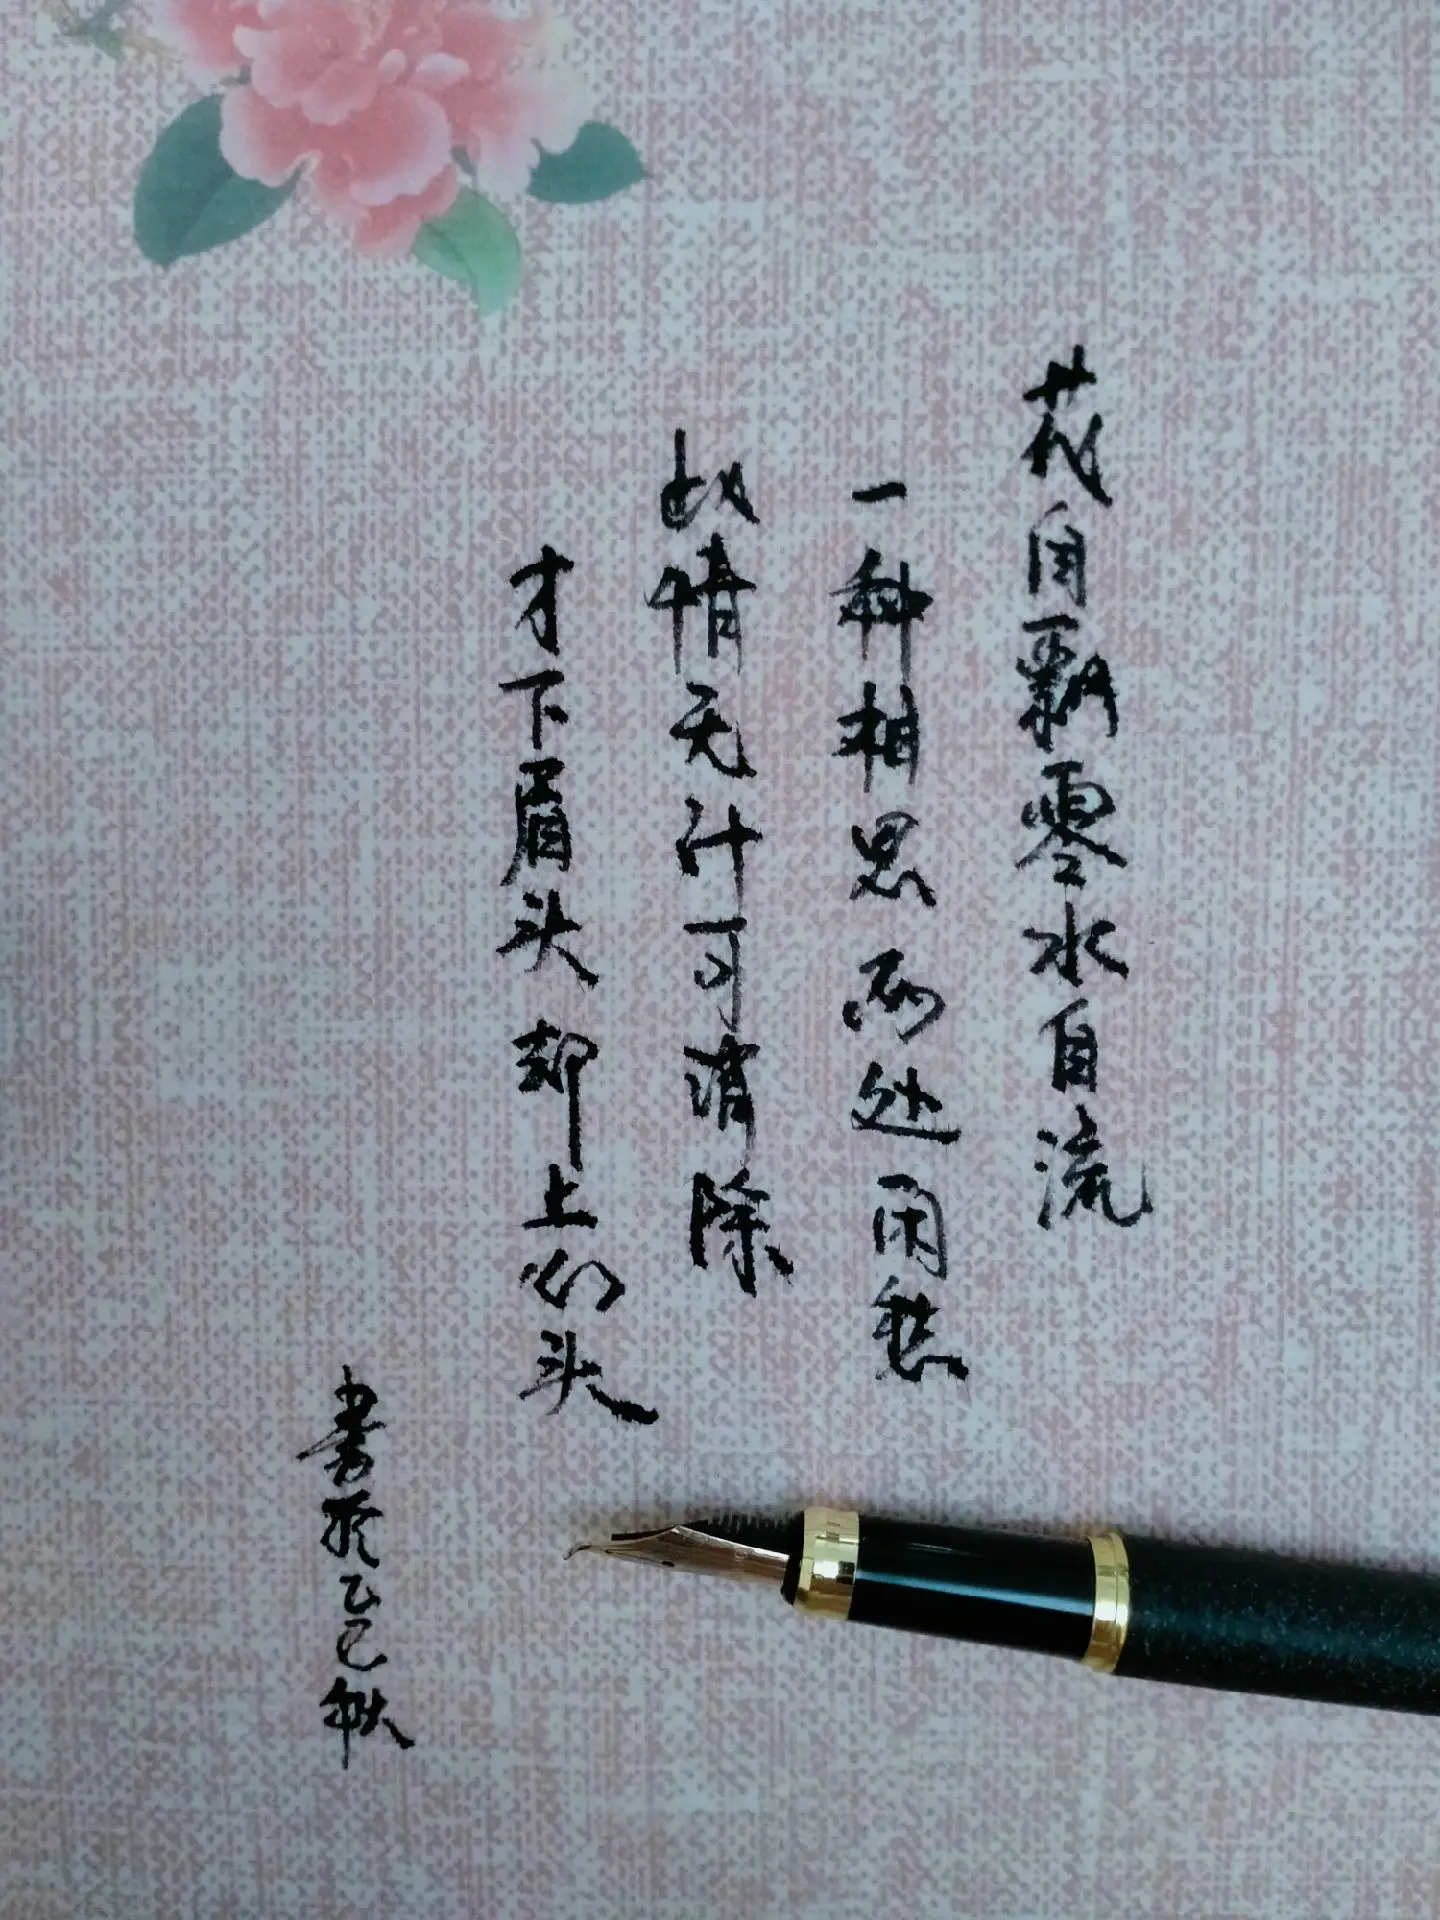 花自飘零水自流
一种相思两处闲愁
此情无计可消除
才下眉头却上心头
书于乙巳秋